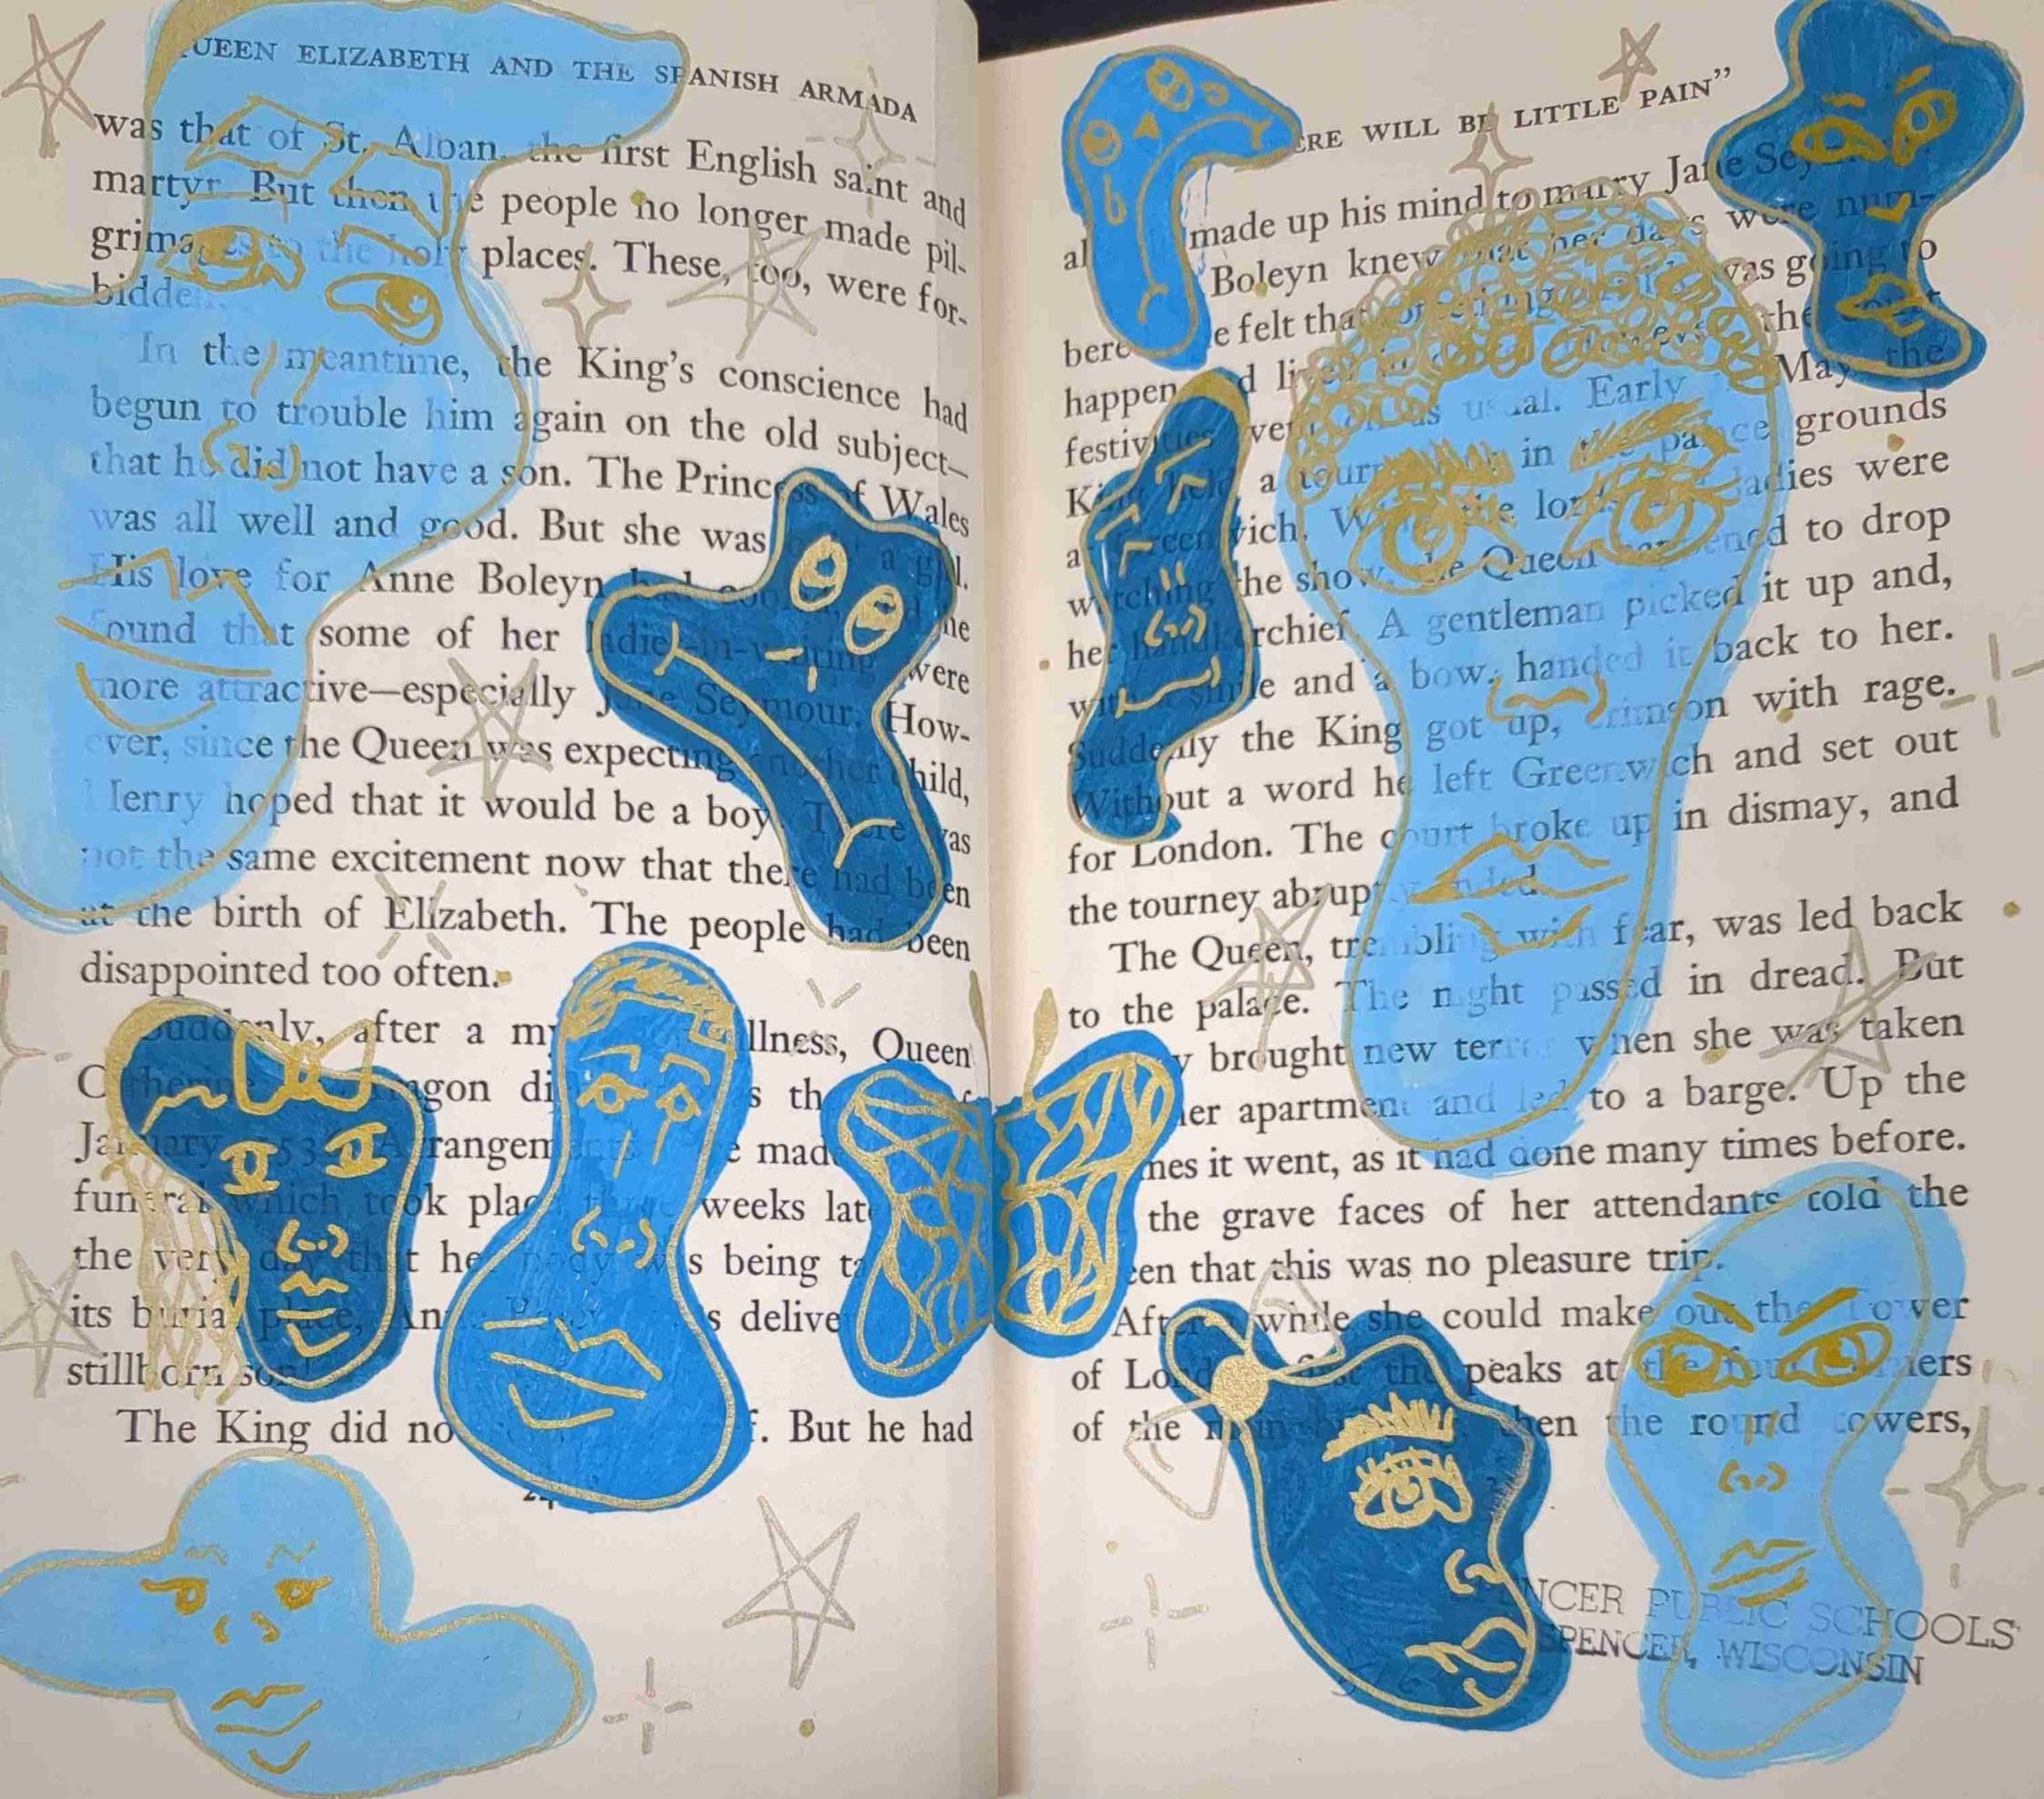 QUEEN ELIZABETH AND THE SPANISH ARMADA
was that of St. Alban, the first English saint and
martyr. But then the people no longer made pil-
grimages to the holy places. These, too, were for-
bidden.
In the meantime, the King's conscience had
begun to trouble him again on the old subject—
that he did not have a son. The Princess of Wales
was all well and good. But she was a girl.
His love for Anne Boleyn had
found that some of her ladies-in-waiting were
more attractive—especially Jane Seymour. How-
ever, since the Queen was expecting another child,
Henry hoped that it would be a boy. There was
not the same excitement now that there had been
at the birth of Elizabeth. The people had been
disappointed too often.
Suddenly, after a illness, Queen
Catherine Aragon
January 153 Arrangements made
funeral which took place three weeks
the very day that her body was being
its burial place, Anne Boleyn was
stillborn son!
The King did not But he had
ERE WILL BE LITTLE PAIN”
made up his mind to marry Jane
Boleyn knew that her days were num-
felt that was going to
happen the
festivities were as usual. Early May, the
King held a tourney in the palace grounds
at Greenwich. While the lords ladies were
watching the show, the Queen happened to drop
her handkerchief. A gentleman picked it up and,
with a smile and a bow, handed it back to her.
Suddenly the King got up, crimson with rage.
Without a word he left Greenwich and set out
for London. The court broke up in dismay, and
the tourney abruptly ended.
The Queen, trembling with fear, was led back
to the palace. The night passed in dread. But
brought new terror when she was taken
her apartment and led to a barge. Up the
it went, as it had done many times before.
the grave faces of her attendants told the
that this was no pleasure trip.
After a while she could make out the Tower
of London, first the peaks at the four corners
of the then the round towers,
SPENCER PUBLIC SCHOOLS
SPENCER, WISCONSIN